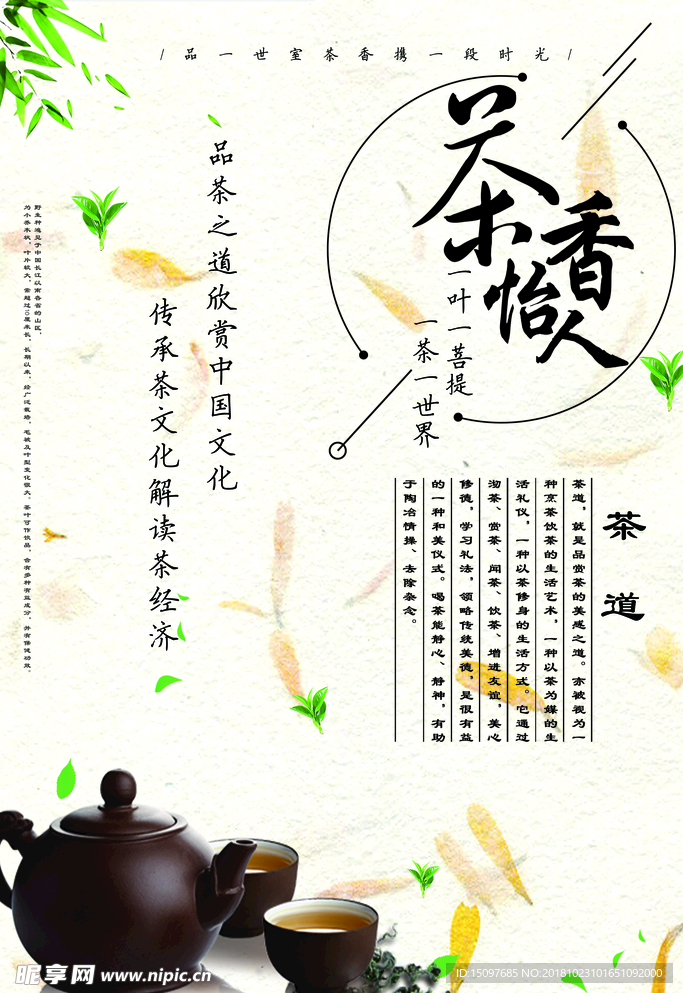 /品一世室茶香携一段时光/
茶香怡人
一叶一菩提
一茶一世界
品茶之道欣赏中国文化
传承茶文化解读茶经济
茶道
茶道，就是品赏茶的美感之道。亦被视为一
种烹茶饮茶的生活艺术，一种以茶为媒的生
活礼仪，一种以茶修身的生活方式。它通过
沏茶、赏茶、闻茶、饮茶、增进友谊，美心
修德，学习礼法，领略传统美德，是很有益
的一种和美仪式。喝茶能静心、静神，有助
于陶冶情操、去除杂念。
野生种遍见于中国长江以南各省的山区，
为小乔木状，叶片较大，常超过10厘米长，长期以来，经广泛栽培，毛被及叶型变化很大。茶叶可作饮品，含有多种有益成分，并有保健功效。
昵享网 www.nipic.cn
ID:15097685 NO:20181023101651092000